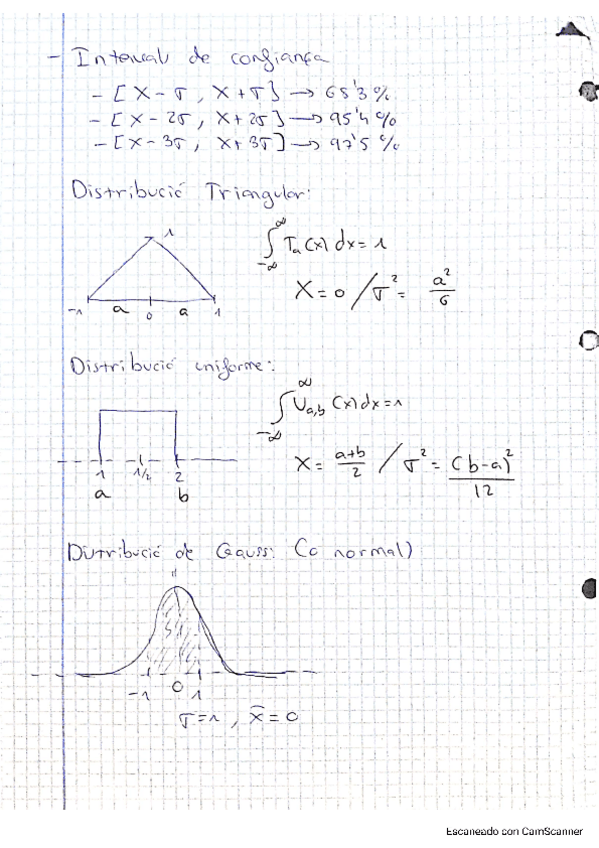 - Interval de confiança
- [X-σ, X+σ] → 68'3%
- [X-2σ, X+2σ] → 95'4%
- [X-3σ, X+3σ] → 97'5%
Distribució Triangular:
1
∫_{-∞}^{∞} Ta(x) dx = 1
X = 0 / σ² = a²/6
-1 a 0 a 1
Distribució uniforme:
∫_{-∞}^{∞} Ua,b (x) dx = 1
X = a+b/2 / σ² = (b-a)²/12
1 1/2 2
a b
Distribució de Gauss: (o normal)
-1 0 1
σ=1, x̄=0
Escaneado con CamScanner